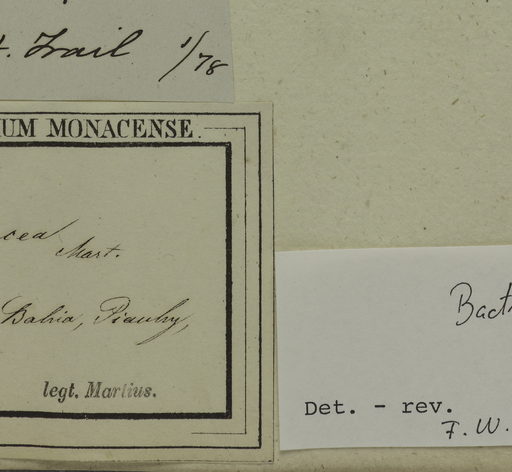 t. Trail 1/78
UM MONACENSE.
cea
Mart.
Bahia, Piauhy,
legt. Martius.
Bact
Det. - rev.
F. W.